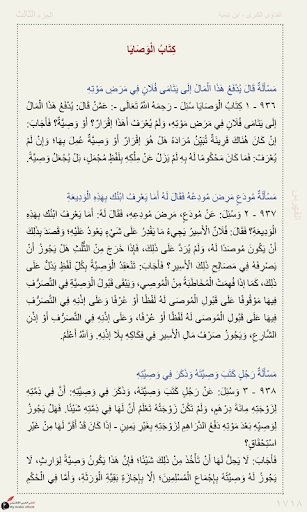 الفتاوى الكبرى - ابن تيمية
الجزء الثالث
كِتَابُ الْوَصَايَا
مَسْأَلَةٌ قَالَ يُدْفَعُ هَذَا الْمَالُ إلَى يَتَامَى فُلَانٍ فِي مَرَضِ مَوْتِهِ
٩٣٦ - ١ كِتَابُ الْوَصَايَا سُئِلَ - رَحِمَهُ اللَّهُ تَعَالَى -: عَمَّنْ قَالَ: يُدْفَعُ هَذَا الْمَالُ
إلَى يَتَامَى فُلَانٍ فِي مَرَضِ مَوْتِهِ، وَلَمْ يُعْرَفْ أَهَذَا إقْرَارٌ؟ أَوْ وَصِيَّةٌ؟ فَأَجَابَ:
إنْ كَانَ هُنَاكَ قَرِينَةٌ تُبَيِّنُ مُرَادَهُ هَلْ هُوَ إقْرَارٌ أَوْ وَصِيَّةٌ عُمِلَ بِهَا؛ وَإِنْ لَمْ
يُعْرَفْ: فَمَا كَانَ مَحْكُومًا لَهُ بِهِ لَمْ يَزُلْ عَنْ مِلْكِهِ بِلَفْظٍ مُجْمَلٍ، بَلْ يُجْعَلُ وَصِيَّةً.
مَسْأَلَةٌ مُودِعُ مَرَضَ مُودَعُهُ فَقَالَ لَهُ أَمَا يَعْرِفُ ابْنُكَ بِهَذِهِ الْوَدِيعَةِ
٩٣٧ - ٢ وَسُئِلَ: عَنْ مُودِعٍ، مَرِضَ مُودِعُهُ، فَقَالَ لَهُ: أَمَا يَعْرِفُ ابْنُكَ بِهَذِهِ
الْوَدِيعَةِ؟ فَقَالَ: فُلَانٌ الْأَسِيرُ يَجِيءُ مَا يَقْدِرُ عَلَى شَيْءٍ يَعُودُ عَلَيْهِ؛ وَقَصَدَ بِذَلِكَ
أَنْ يَكُونَ مُوصِدًا لَهُ، وَلَمْ يَرُدَّ عَلَى ذَلِكَ، فَإِذَا خَرَجَ مِنْ الثُّلُثِ هَلْ يَجُوزُ أَنْ
يَصْرِفَهُ فِي مَصَالِحِ ذَلِكَ الْأَسِيرِ؟ فَأَجَابَ: تَنْعَقِدُ الْوَصِيَّةُ بِكُلِّ لَفْظٍ يَدُلُّ عَلَى
ذَلِكَ، كَمَا إذَا فُهِمَتْ الْمُخَاطَبَةُ مِنْ الْمُوصِي، وَيَبْقَى قَبُولُ الْوَصِيَّةِ فِي التَّصَرُّفِ
فِيهَا مَوْقُوفًا عَلَى قَبُولِ الْمُوصَى لَهُ لَفْظًا أَوْ عُرْفًا وَعَلَى إذْنِهِ فِي التَّصَرُّفِ أَوْ إذْنِ
الشَّارِعِ، وَيَجُوزُ صَرْفُ مَالِ الْأَسِيرِ فِي فِكَاكِهِ بِلَا إذْنِهِ. وَاَللَّهُ أَعْلَمُ.
مَسْأَلَةٌ رَجُلٌ كَتَبَ وَصِيَّتَهُ وَذَكَرَ فِي وَصِيَّتِهِ
٩٣٨ - ٣ سُئِلَ: عَنْ رَجُلٍ كَتَبَ وَصِيَّتَهُ، وَذَكَرَ فِي وَصِيَّتِهِ: أَنَّ فِي ذِمَّتِهِ
لِزَوْجَتِهِ مِائَةَ دِرْهَمٍ، وَلَمْ تَكُنْ زَوْجَتُهُ تَعْلَمُ أَنَّ لَهَا فِي ذِمَّتِهِ شَيْئًا. فَهَلْ يَجُوزُ
لِوَصِيِّهِ بَعْدَ مَوْتِهِ دَفْعُ الدَّرَاهِمِ لِزَوْجَتِهِ بِغَيْرِ يَمِينٍ - إذَا كَانَ قَدْ أَقَرَّ لَهَا مِنْ غَيْرِ
اسْتِحْقَاقٍ؟
فَأَجَابَ: لَا يَحِلُّ لَهَا أَنْ تَأْخُذَ مِنْ ذَلِكَ شَيْئًا؛ فَإِنَّ هَذَا يَكُونُ وَصِيَّةً لِوَارِثٍ، لَا
يَجُوزُ لَهَا الْوَصِيَّةُ بِإِجْمَاعِ الْمُسْلِمِينَ؛ إلَّا بِإِجَازَةِ بَقِيَّةِ الْوَرَثَةِ، وَأَمَّا فِي الْحُكْمِ
١٧١٨